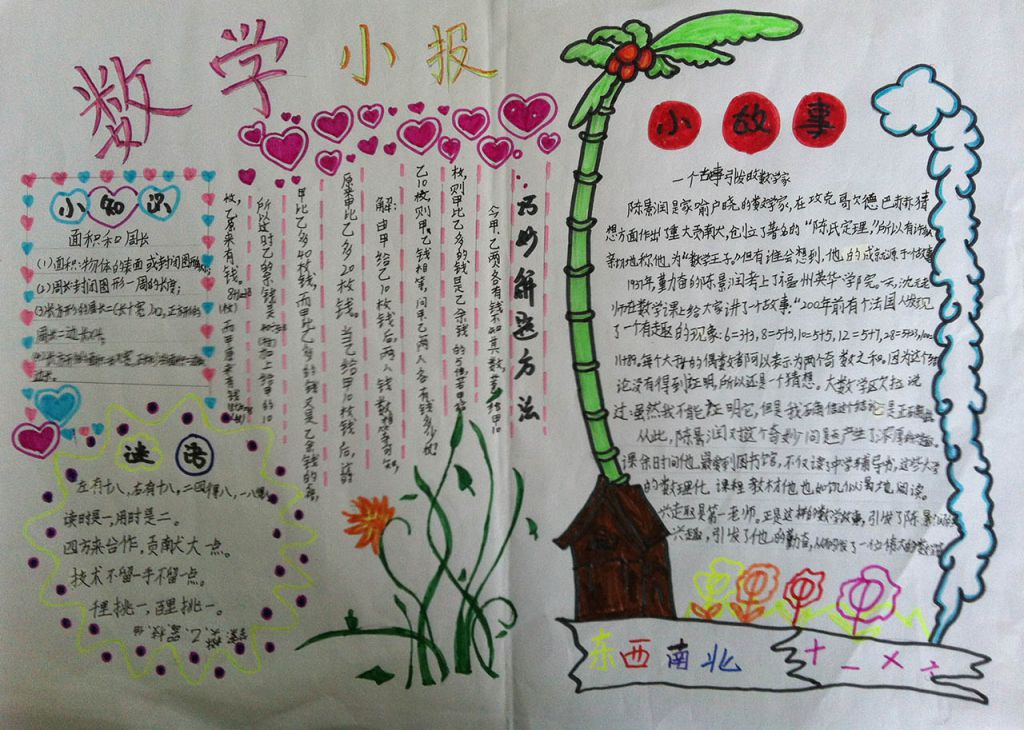 数学小报
小知识
面积和周长
(1)面积:物体的表面或封闭图
(2)周长:封闭图形一周的长度;
谜语
左有十八,右有十八,二四得八,一八
读时是一,用时是二。
四方来合作,贡献大一点。
技术不留一手不留一点。
千里挑一,百里挑一。
巧妙解题方法
今甲、乙两各有钱不
枚,则甲比乙多的钱是乙余钱的
乙10枚,则甲、乙钱相等,问甲、乙两人各有钱多少枚
解:由甲给乙10枚钱后,两人钱数相等可知,
原来甲比乙多20枚钱。当乙给甲10枚钱后,这时
甲比乙多40枚钱,而甲比乙多的钱又是乙余钱的
所以这时乙的余钱是
枚,乙原来有钱
(枚)而甲原来有钱
小故事
一个故事引发的数学家
陈景润是家喻户晓的数学家,在攻克哥欠德巴赫猜
想方面作出了重大贡献,创立了著名的“陈氏定理”,所以有许
亲切地称他为“数学王子”但有谁会想到,他的成就源于一故事
1937年,勤奋的陈景润考上了福州英华学院。
师在数学课上给大家讲了个故事:“200年前有个法国人发现
了一个有趣的现象:6=3+3,8=5+3,10=5+5,12=5+7,28=5+23,
每个大于4的偶数者都可以表示为两个奇数之和。因为这个
论没有得到证明,所以还是一个猜想。大数学欧拉说
过:虽然我不能证明它,但是我确信这个结论是正确
从此,陈景润对这个奇妙问题产生了浓厚
课余时间他最爱到图书馆,不仅读了中学辅导书,这些大
的数理化课程教材他也如饥似渴地阅读。
兴趣是第一老师。正是这样的数学故事,引发了陈景润
兴趣,引发了他的勤奋,从而引发了一位伟大的数学
东西南北 十一×÷